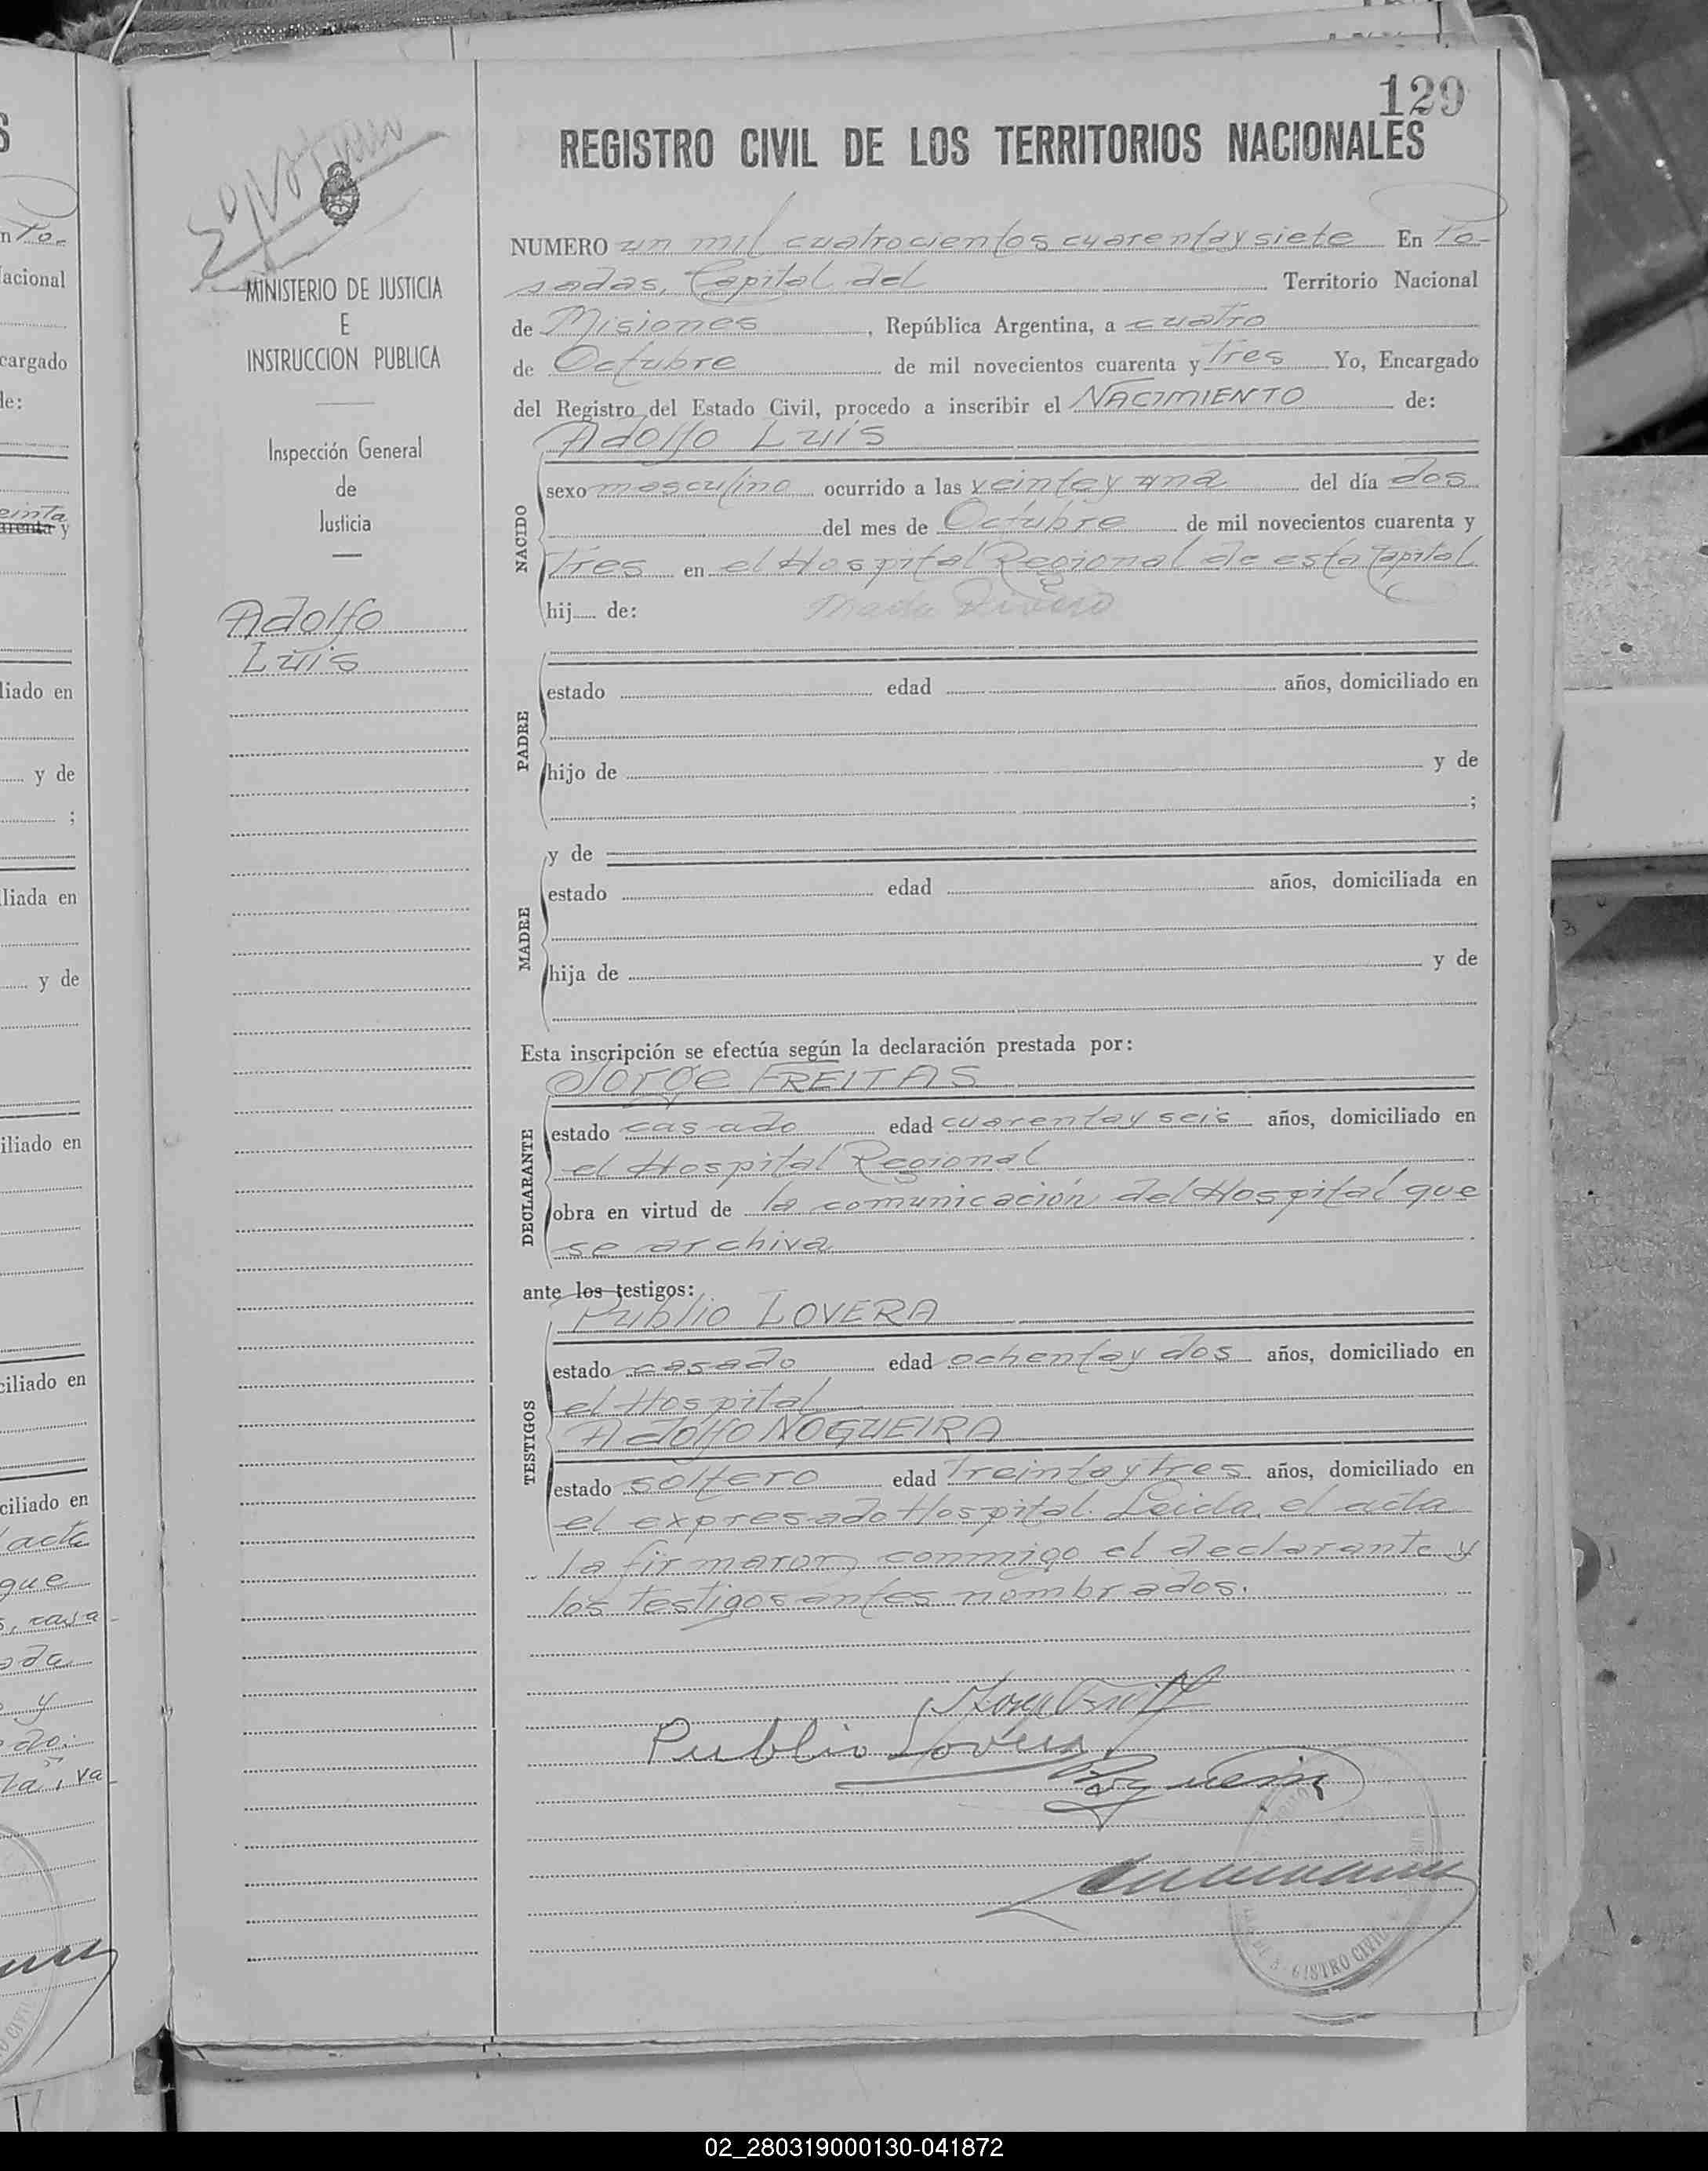 129
REGISTRO CIVIL DE LOS TERRITORIOS NACIONALES
MINISTERIO DE JUSTICIA
E
INSTRUCCION PUBLICA
Inspección General
de
Justicia
Adolfo
Luis
NUMERO un mil cuatrocientos cuarenta y siete En Po-
sadas, Capital del Territorio Nacional
de Misiones, República Argentina, a cuatro
de Octubre de mil novecientos cuarenta y Tres Yo, Encargado
del Registro del Estado Civil, procedo a inscribir el NACIMIENTO de:
Adolfo Luis
NACIDO
sexo masculino ocurrido a las veinte y una del día dos
del mes de Octubre de mil novecientos cuarenta y
Tres en el Hospital Regional de esta Capital
hij de:
PADRE
estado edad años, domiciliado en
hijo de y de
;
y de
MADRE
estado edad años, domiciliada en
hija de y de
Esta inscripción se efectúa según la declaración prestada por:
Jorge FREITAS
DECLARANTE
estado casado edad cuarenta y seis años, domiciliado en
el Hospital Regional
obra en virtud de la comunicación del Hospital que
se archiva
ante los testigos:
Publio LOVERA
TESTIGOS
estado casado edad ochenta y dos años, domiciliado en
el Hospital
Adolfo NOGUEIRA
estado soltero edad Treinta y tres años, domiciliado en
el expresado Hospital. Leida el acta
la firmaron conmigo el declarante y
los testigos antes nombrados.
Publio Lovera
02_280319000130-041872